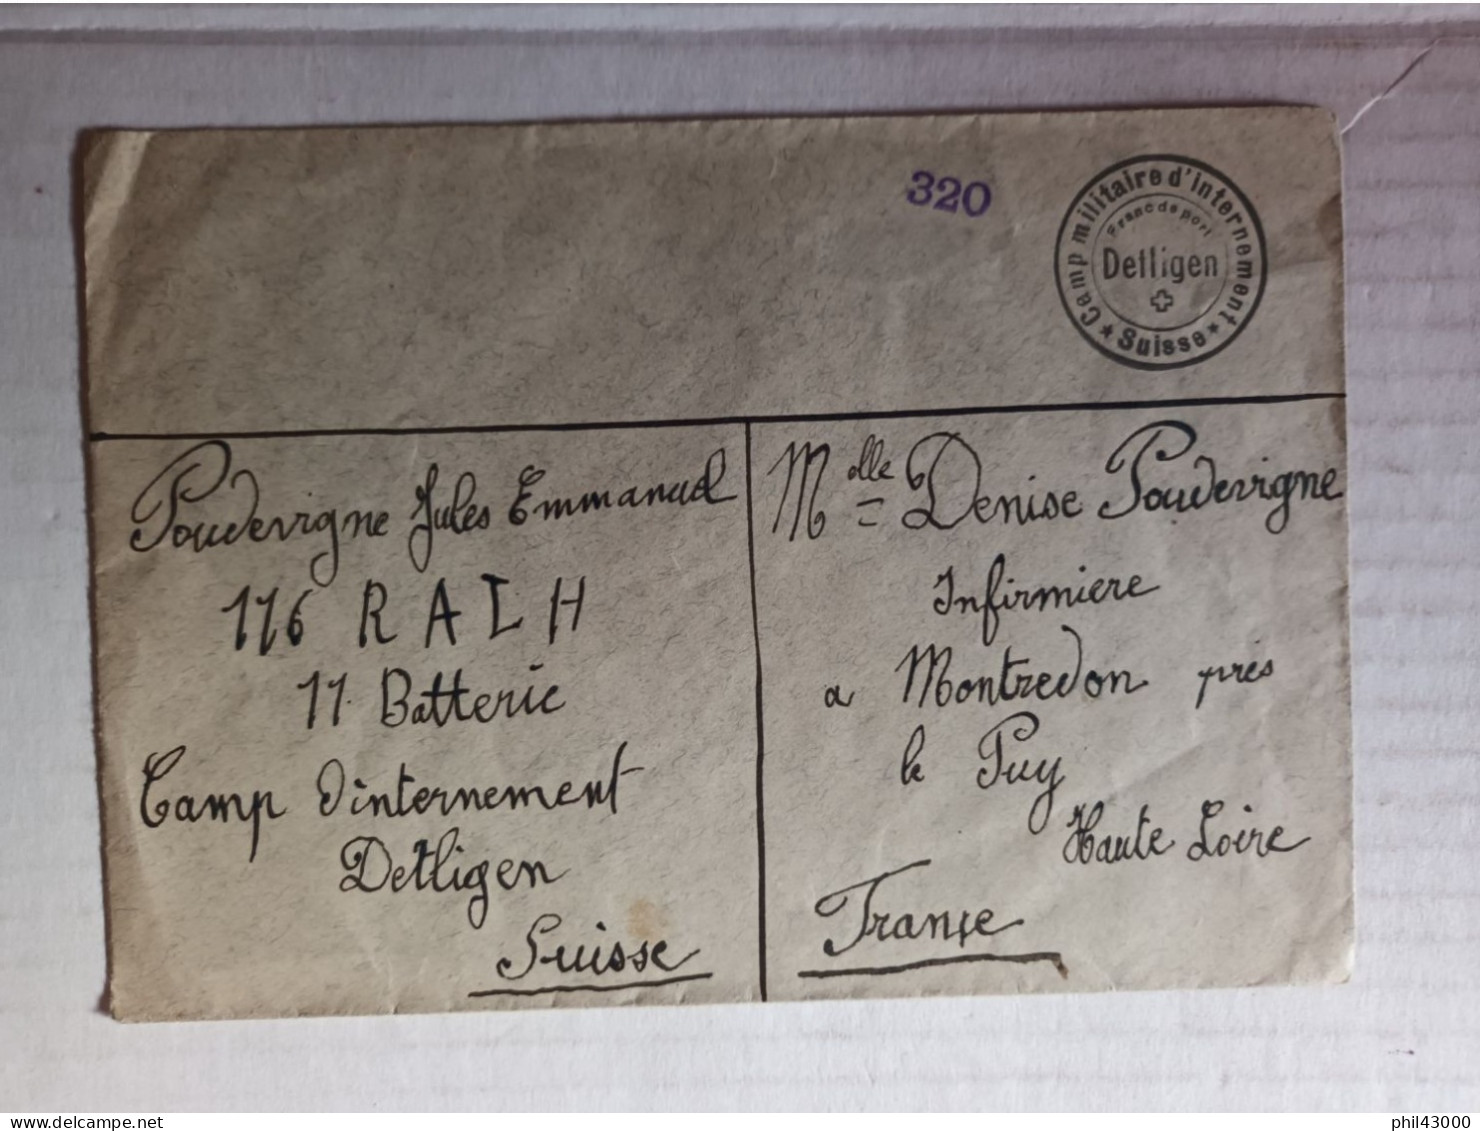 320
Camp militaire d'internement
Franc de port
Detligen
★ Suisse ★
Poudevigne Jules Emmanuel
116 R A L H
11. Batterie
Camp d'internement
Detligen
Suisse
Melle = Denise Poudevigne
Infirmiere
a Montredon pres
le Puy
Haute Loire
France
phil43000